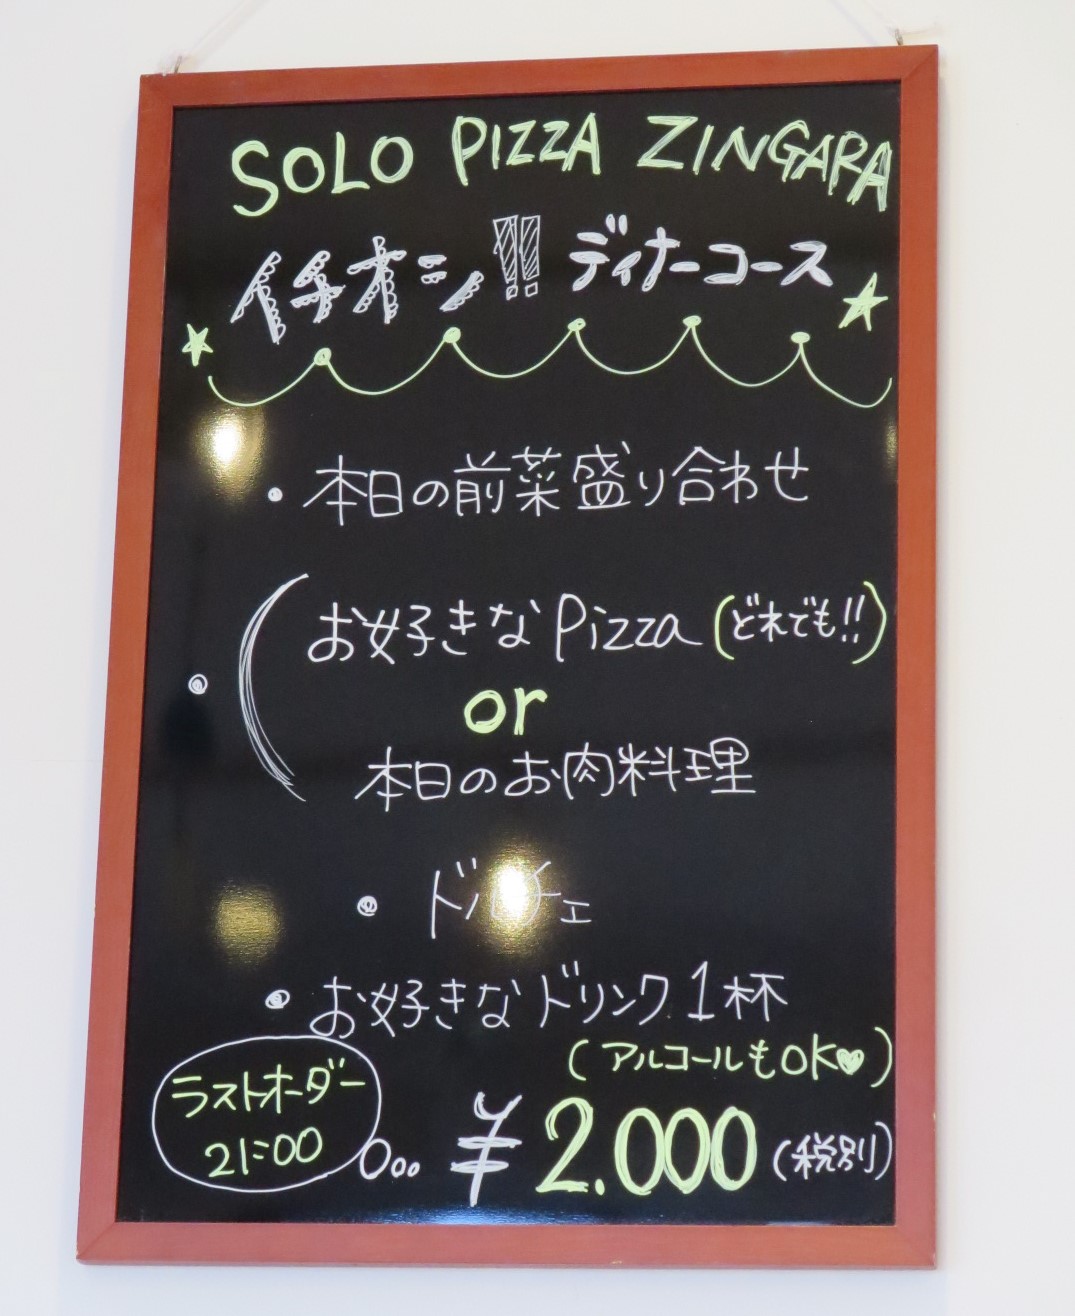 SOLO PIZZA ZINGARA
イチオシ!! ディナーコース
・本日の前菜盛り合わせ
・(お好きなPizza (どれでも!!)
or
本日のお肉料理
・ドルチェ
・お好きなドリンク1杯
(アルコールもOK♥)
ラストオーダー
21:00
¥2.000 (税別)